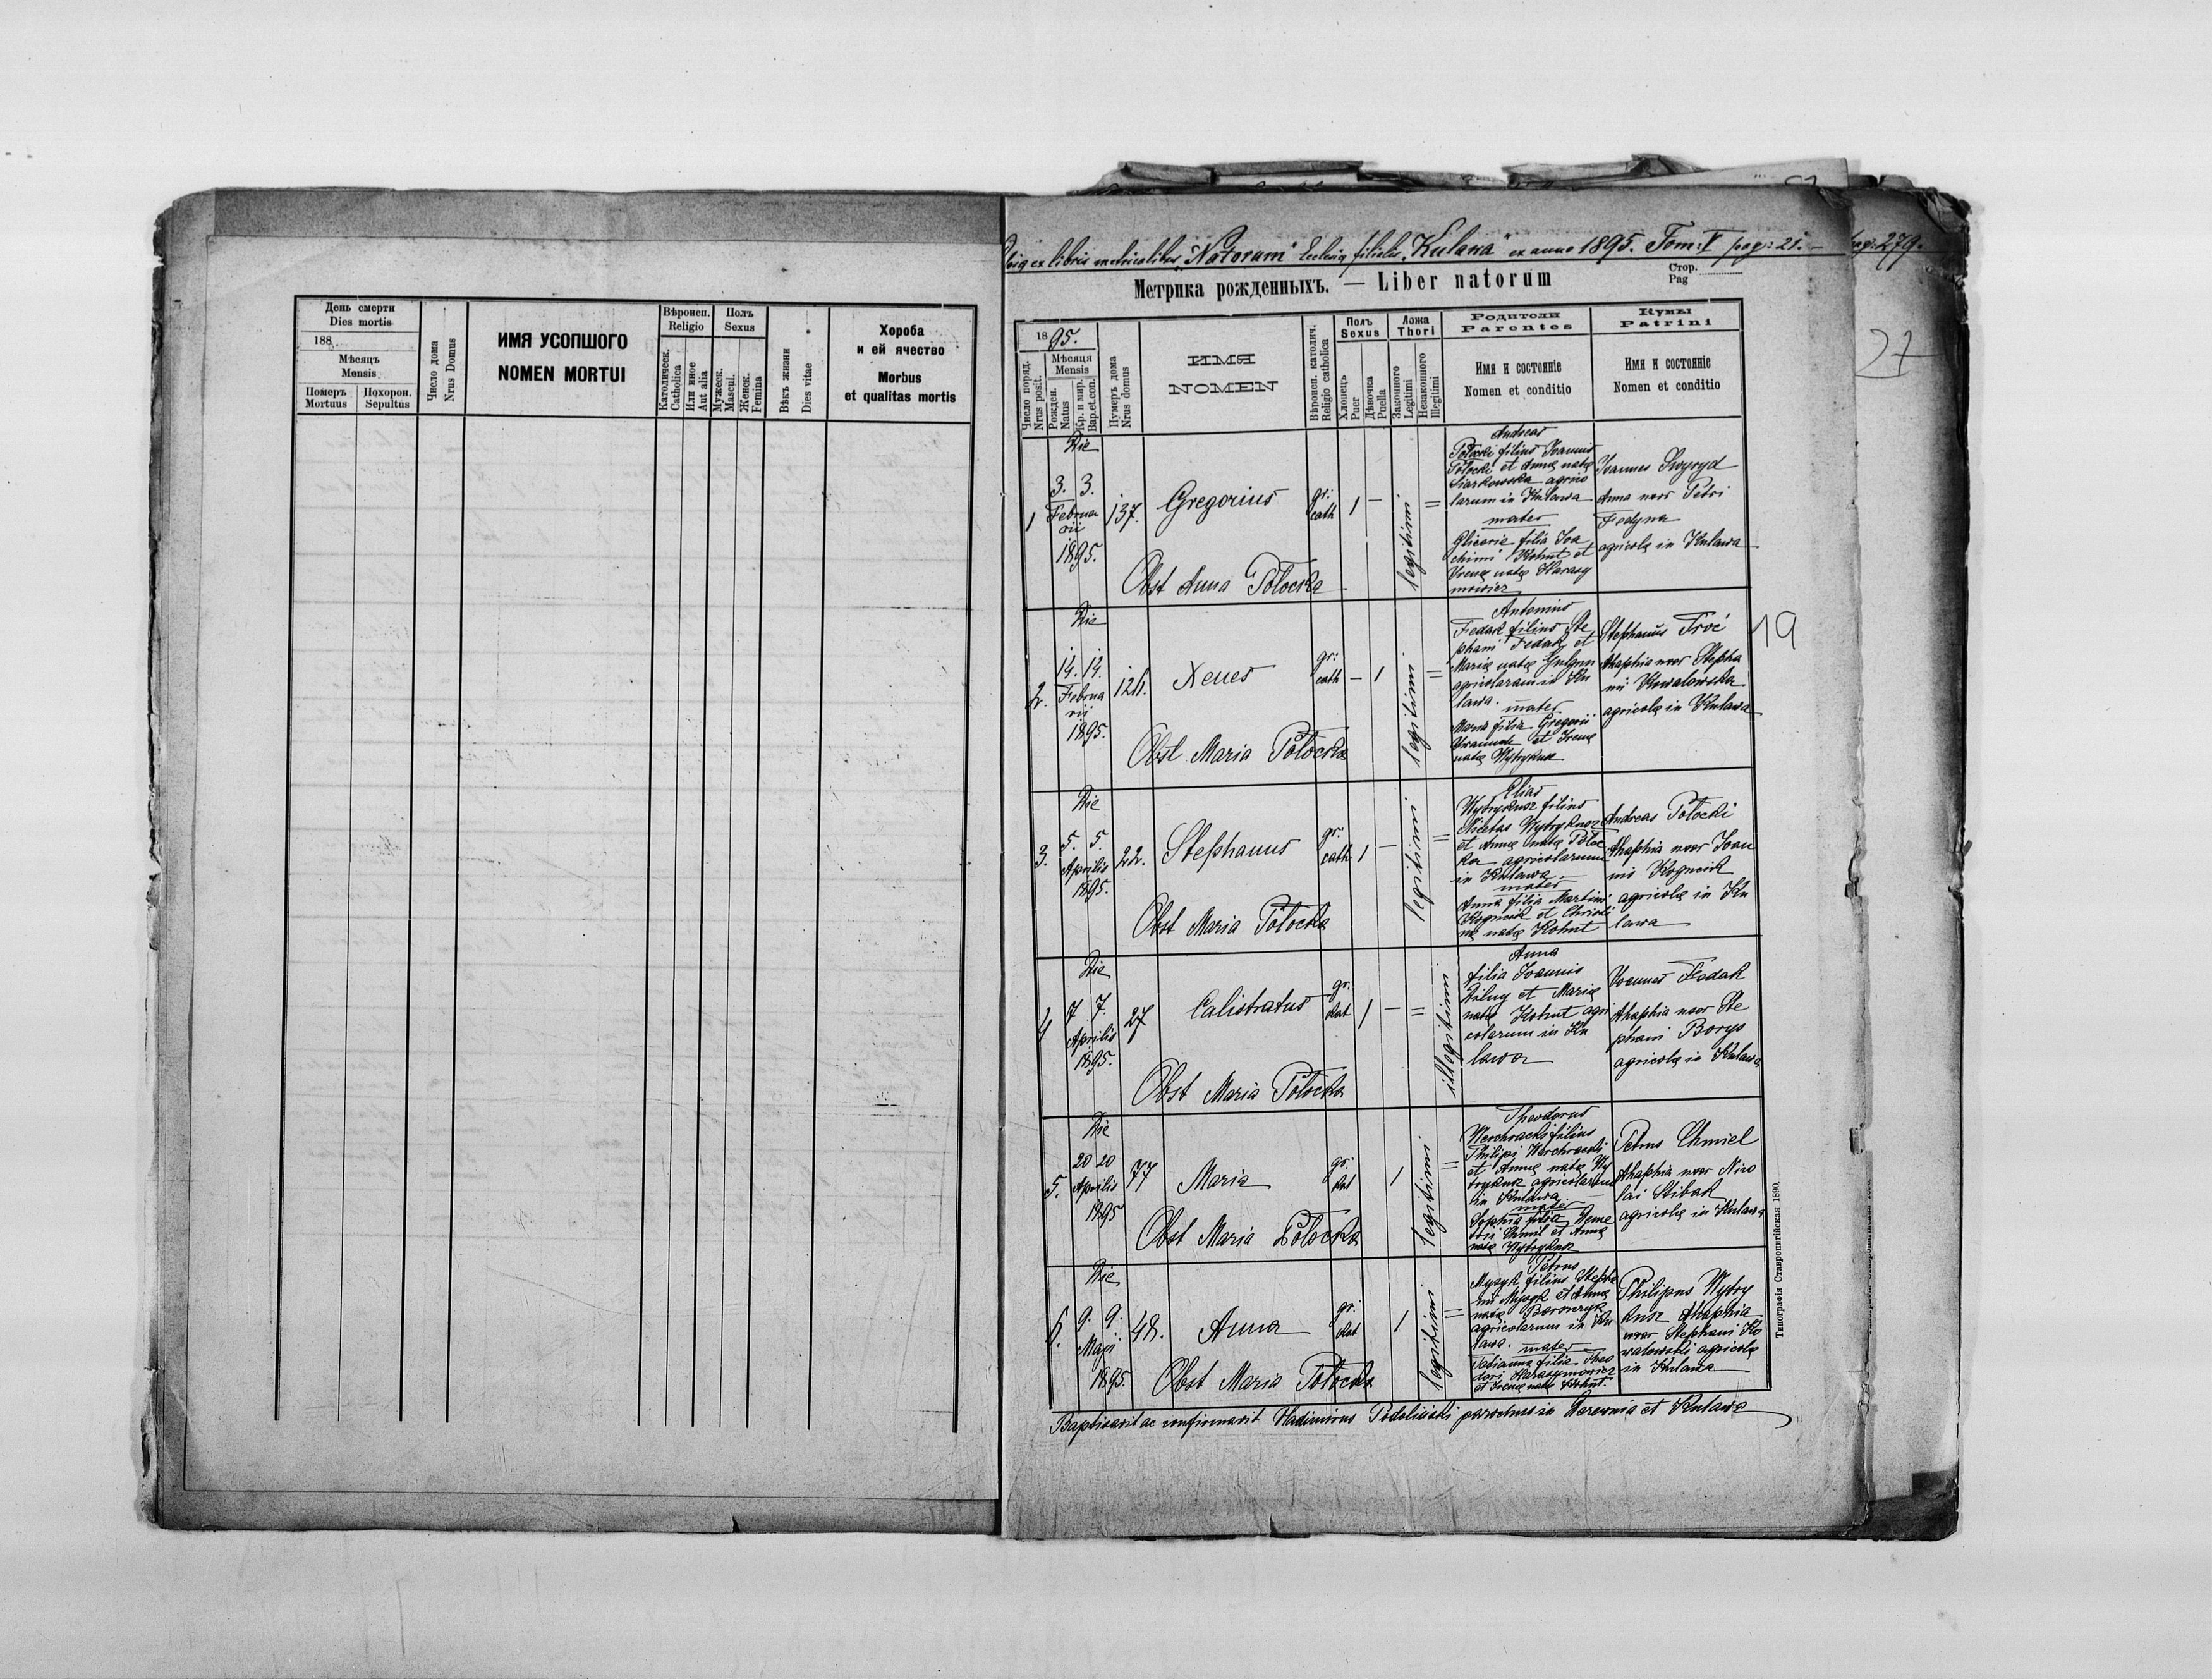 День смерти
Dies mortis
188
Мѣсяцъ
Mensis
Померъ
Mortuus
Похорон.
Sepultus
Число дома
Nrus Domus
ИМЯ УСОПШОГО
NOMEN MORTUI
Вѣроисп.
Religio
Католическ.
Catholica
Или иное
Aut alia
Полъ
Sexus
Мужеск.
Mascul.
Женск.
Femina
Вѣкъ жизни
Dies vitae
Хороба
и ей ячество
Morbus
et qualitas mortis
ex libris metricalibus "Natorum" Ecclesiae filialis "Kulawa" ex anno 1895. Tom: V pag: 21. —
pag: 279.
Метрика рожденныхъ. — Liber natorum
Стор.
Pag
27
19
1895.
Число поряд.
Nrus posit.
Мѣсяця
Mensis
Рожден.
Natus
Кр. и мир.
Bap.et.con.
Нумеръ дома
Nrus domus
ИМЯ
NOMEN
Вѣроисп. католич.
Religio catholica
Полъ
Sexus
Хлопецъ
Puer
Дѣвочка
Puella
Ложа
Thori
Законного
Legitimi
Незаконного
Illegitimi
Родители
Parentes
Имя и состоянiе
Nomen et conditio
Кумы
Patrini
Имя и состоянiе
Nomen et conditio
Die
1 3. 3.
Februa
rii
1895.
137.
Gregorius
gr:
cath
1 —
legitimi
=
Obst Anna Potocka
Andreas
Potocki filius Joannis
Potocki et Annae natae
Siarkowska agrico
larum in Kulawa
mater
Glicerie filia Joa
chimi Kohut et
Irenae natae Harasy
mowicz
Joannes
Anna uxor Petri
Fedyna
agricolae in Kulawa
Die
2. 14. 14.
Februa
rii
1895.
126.
Xenes
gr:
cath
— 1
legitimi
=
Obst Maria Potocka
Antonius
Fedak filius Ste
phani Fedak et
Mariae natae
agricolarum in Ku
lawa. mater
Maria filia Gregorii
et Irenae
natae Wytrykusz
Stephanus Troć
Ahaphia uxor Stepha
ni Kowalowska
agricolae in Kulawa
Die
3. 5. 5.
Aprilis
1895.
22.
Stephanus
gr:
cath
1 —
legitimi
=
Obst Maria Potocka
Elias
Wytrykusz filius
Nicetas Wytrykusz
et Annae natae Potoc
ka agricolarum
in Kulawa.
mater
Anna filia Martini
et Christi
nae natae Kohut
Andreas Potocki
Ahaphia uxor Joan
nis
agricolae in Ku
lawa
Die
4 7 7.
Aprilis
1895.
27
Calistratus
gr:
kat
1 —
=
illegitimi
Obst Maria Potocka
Anna
filia Joannis
et Mariae
natae Kohut agri
colarum in Ku
lawa
Joannes Fedak
Ahaphia uxor Ste
phani Borys
agricolae in Kulawa
Die
5. 20 20
Aprilis
1895
77
Maria
gr:
kat
1
legitimi
=
Obst Maria Potocka
Theodorus
Werchracki filius
Philipi Werchracki
et Annae natae Wy
trykusz agricolarum
in Kulawa
mater
Sophia filia Deme
trii Chmil et Annae
natae Wytrykusz
Petrus Chmiel
Ahaphia uxor Nico
lai Stibak
agricolae in Kulawa
Die
6. 9. 9.
Maji
1895.
48.
Anna
gr:
kat
1
legitimi
=
Obst Maria Potocka
Petrus
Mysyk filius Stepha
ni Mysyk et Annae
natae
agricolarum in Ku
lawa. mater
Tatianna filia Theo
dori Harasymowicz
et Irenae natae Kohut.
Philipus Wytry
kusz Ahaphia
uxor Stephani Ko
walowski agricolae
in Kulawa
Baptisavit ac confirmavit Vladimirus Podoliński parochus in Derewnia et Kulawa
Типографія Ставропигійская 1890.